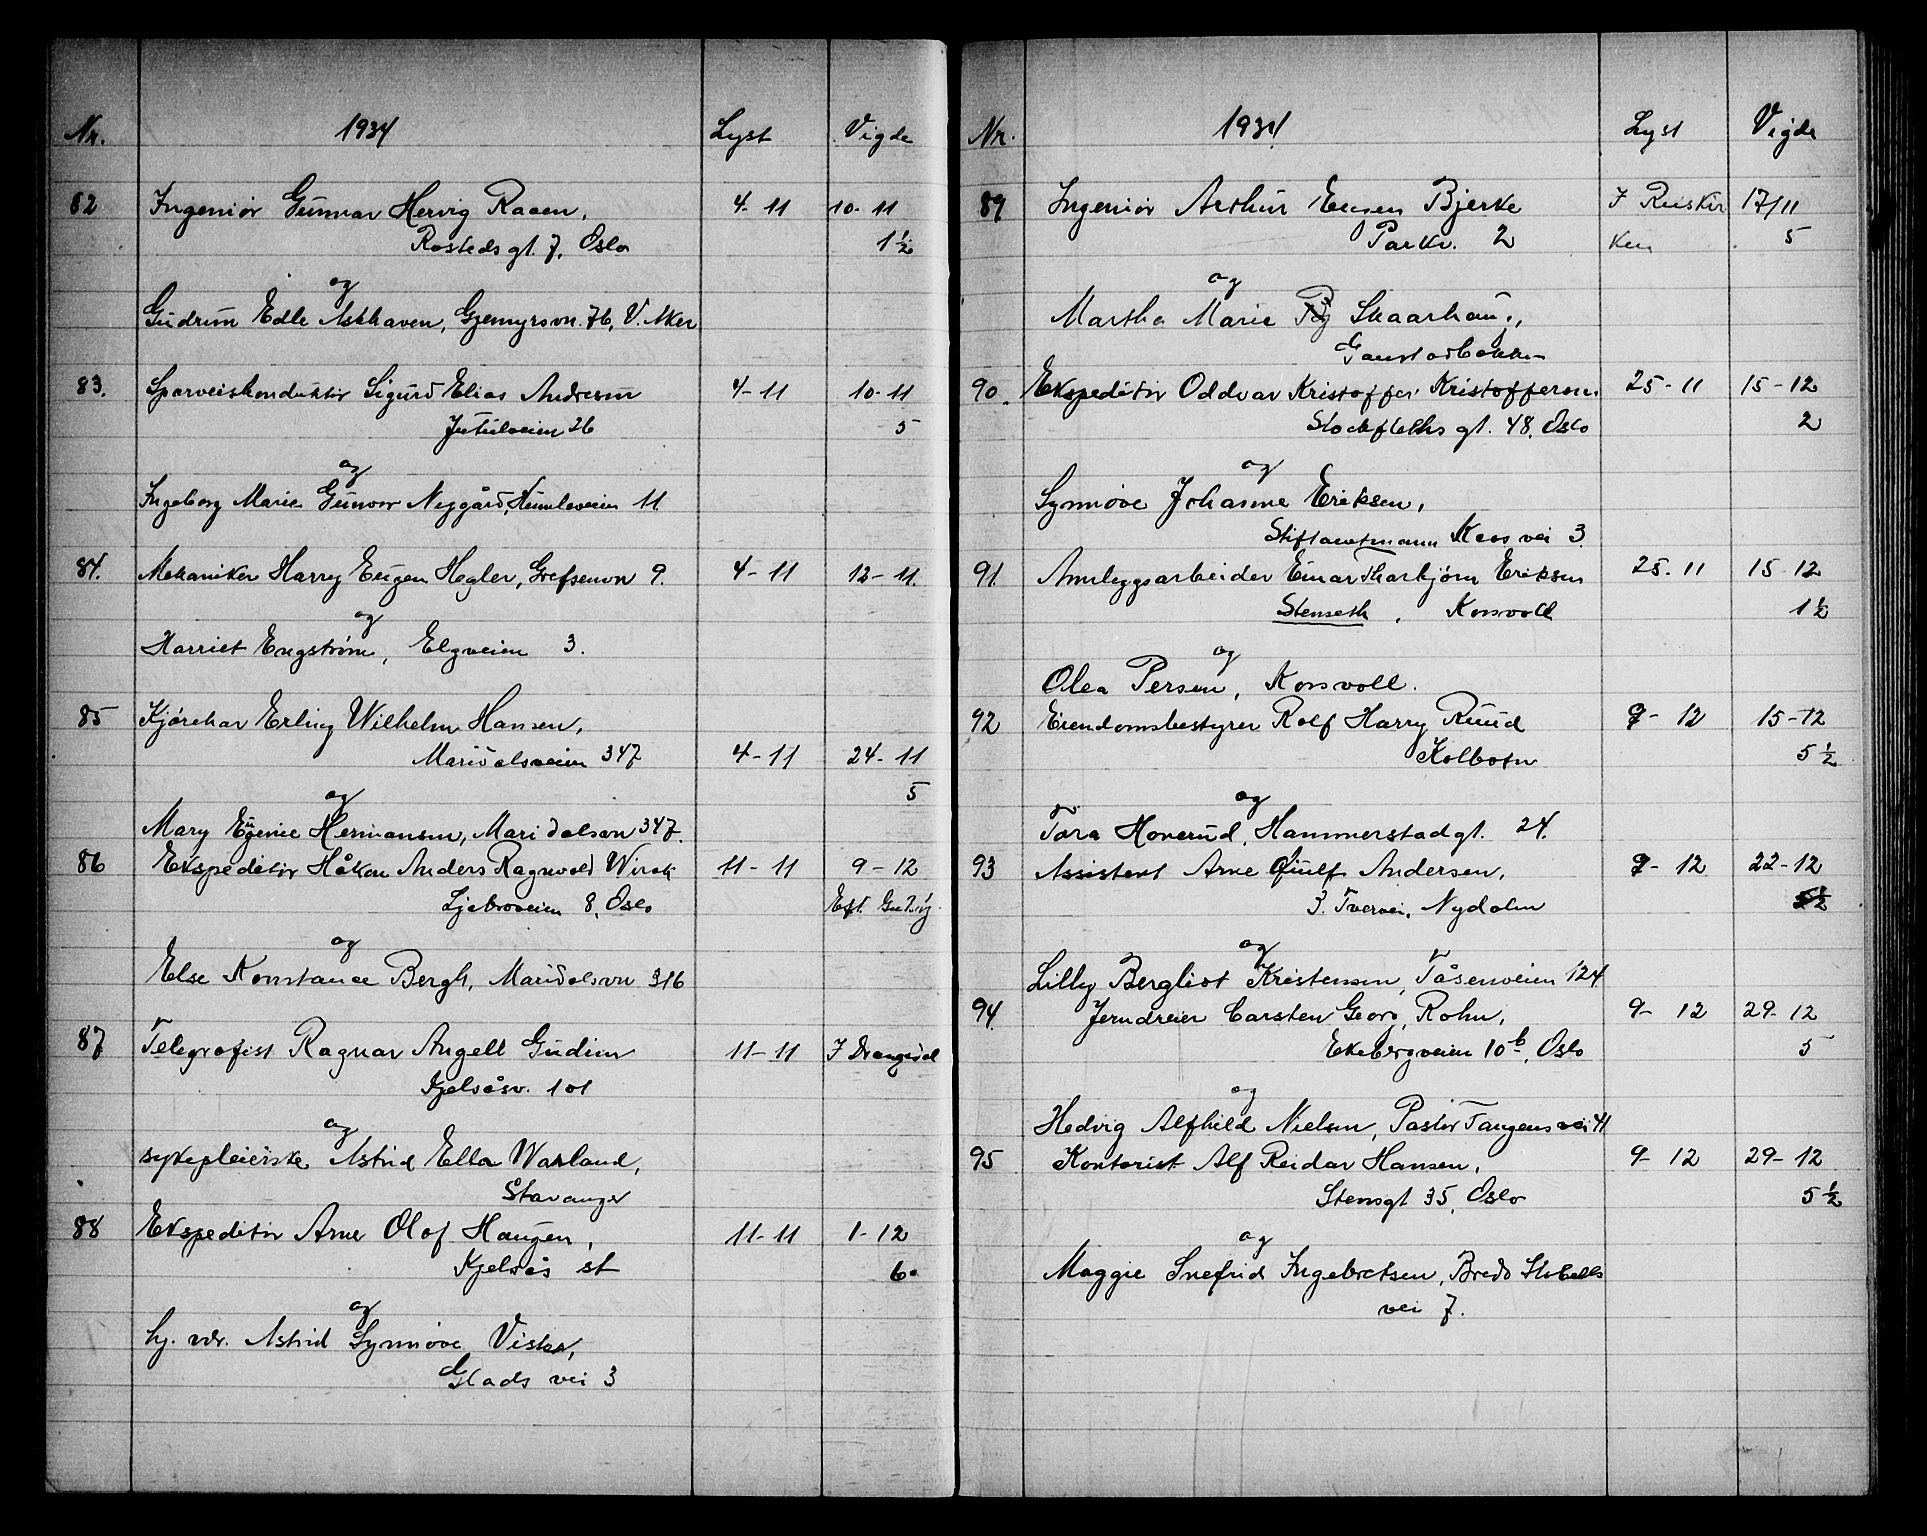 Nr. 1934 Lyst Vigde
82 Ingeniør Gunnar Hervig Raaen, 4-11 10-11
Rosteds gt. 7, Oslo 1½
og
Gudrun Edle Askhaven, Gjemyrsvn. 76, V. Aker
83. Sporveiskonduktør Sigurd Elias Andresen 4-11 10-11
Jutulveien 26 5
og
Ingeborg Marie Gunvor Nygård, Humleveien 11
84. Mekaniker Harry Eugen Hegler, Grefsenvn 9. 4-11 12-11.
og
Harriet Engstrøm, Elgveien 3.
85 Kjørekar Erling Wilhelm Hansen,
Maridalsveien 347 4-11 24-11
5
og
Mary Eugenie Hermansen, Maridalsvn 347.
86 Ekspeditør Håkon Anders Ragnvald Wirak 11-11 9-12
Ljabroveien 8, Oslo Eft. Gudstj.
og
Else Konstance Bergh, Maridalsvn 316
87 Telegrafist Ragnar Angell Gudim 11-11 I Drangedal
Kjelsåsv. 101
og
sykepleierske Astrid Ella Warland,
Stavanger
88 Ekspeditør Arne Olof Haugen, 11-11 1-12
Kjelsås st 6.
og
hj. vær. Astrid Synnøve Visker,
Glads vei 3
Nr. 1934 Lyst Vigde
89 Ingeniør Arthur Eugen Bjerke I Riskir 17/11
Parkv. 2 ken 5
og
Martha Marie Skaarhaug,
Gaustadbakken
90. Ekspeditør Oddvar Kristoffer Kristoffersen. 25-11 15-12
Stockfleths gt. 48, Oslo 2
og
Synnøve Johanne Eriksen,
Stiftamtmann Kaas vei 3.
91. Anleggsarbeider Einar Tharbjørn Eriksen 25-11 15-12
Stenseth, Korsvoll 1½
og
Olea Persen, Korsvoll.
92 Eiendomsbestyrer Rolf Harry Ruud 9-12 15-12
Kolbotn 5½
og
Tora Honerud, Hammerstadgt. 24.
93 Assistent Arne Andersen, 9-12 22-12
3. Tvervei, Nydalen 5½
og
Lilly Bergliot Kristensen, Tåsenveien 124
94. Jerndreier Carsten Georg Rohn, 9-12 29-12
Ekebergveien 10b, Oslo 5
og
Hedvig Alfhild Nielsen, Pastor Fangens vei 41
95 Kontorist Alf Reidar Hansen, 9-12 29-12
Stensgt 35, Oslo 5½
og
Maggie Snefrid Ingebretsen, Bredo Stabells
vei 7.